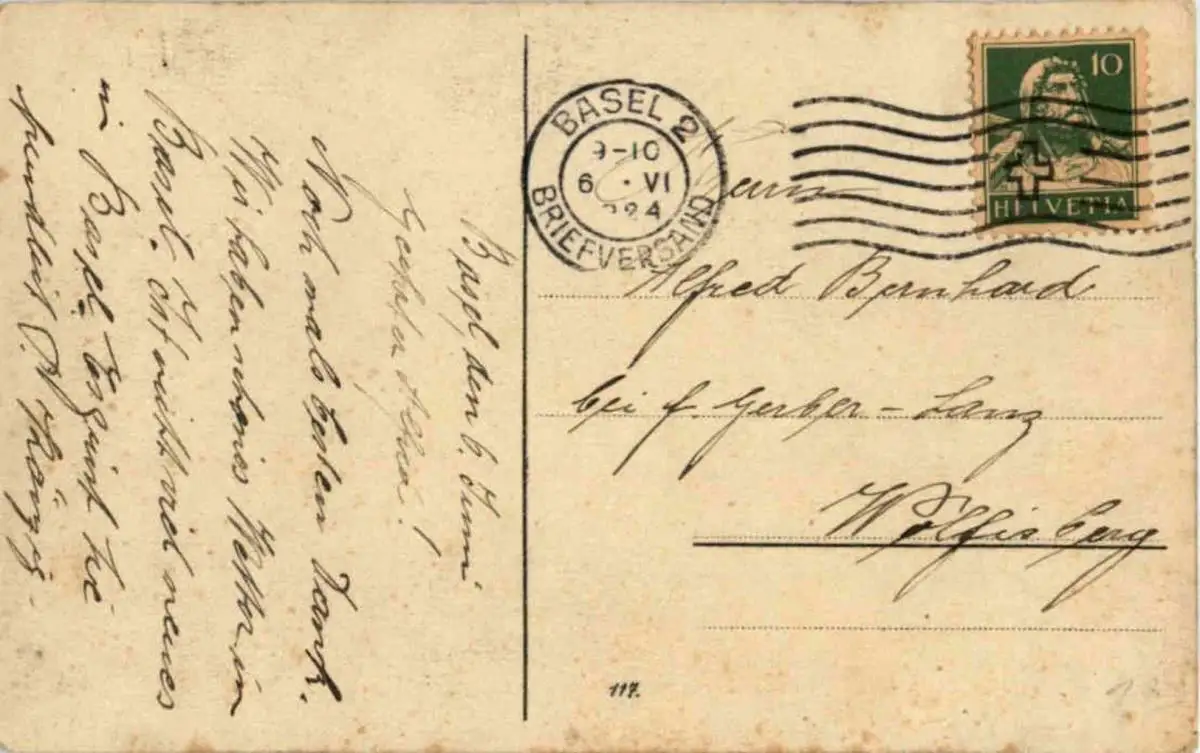 Basel den 6. Juni
Geehrter
Noch mals besten Dank.
Wir haben schönes Wetter in
Basel. Ist nicht viel neues
in Basel. Es grüsst Sie
freundlich
BASEL 2
9-10
6 . VI
BRIEFVERSAND
10
HELVETIA
Herrn
Alfred Bernhard
bei f. Gerber - Lanz
Wolfisberg
117.